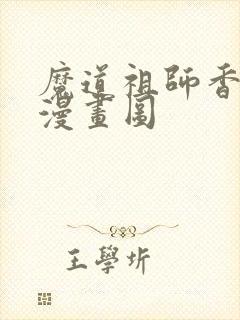 魔道祖師香
漫畫圖
王學圻